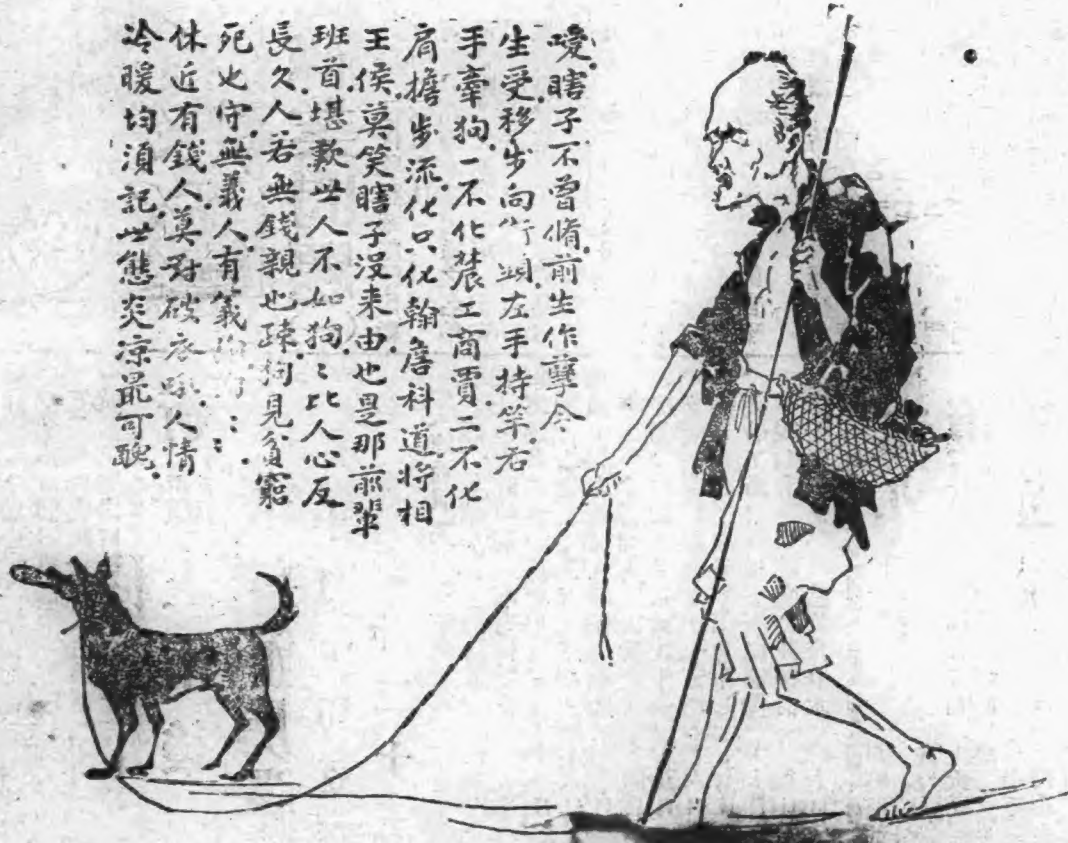 嗳.瞎子不曾脩.前生作孽今
生受.移步向街頭.左手持竿.右
手牽狗.一不化農工商賈.二不化
肩擔步流.化只化翰詹科道.将相
王侯.莫笑瞎子没来由.也是那前輩
班首.堪歎世人不如狗.狗比人心反
長久.人若無錢親也疎.狗見貧窮
死也守.無義人.有義狗
休近有錢人.莫對破衣吼.人情
冷暖均須記.世態炎凉最可醜.